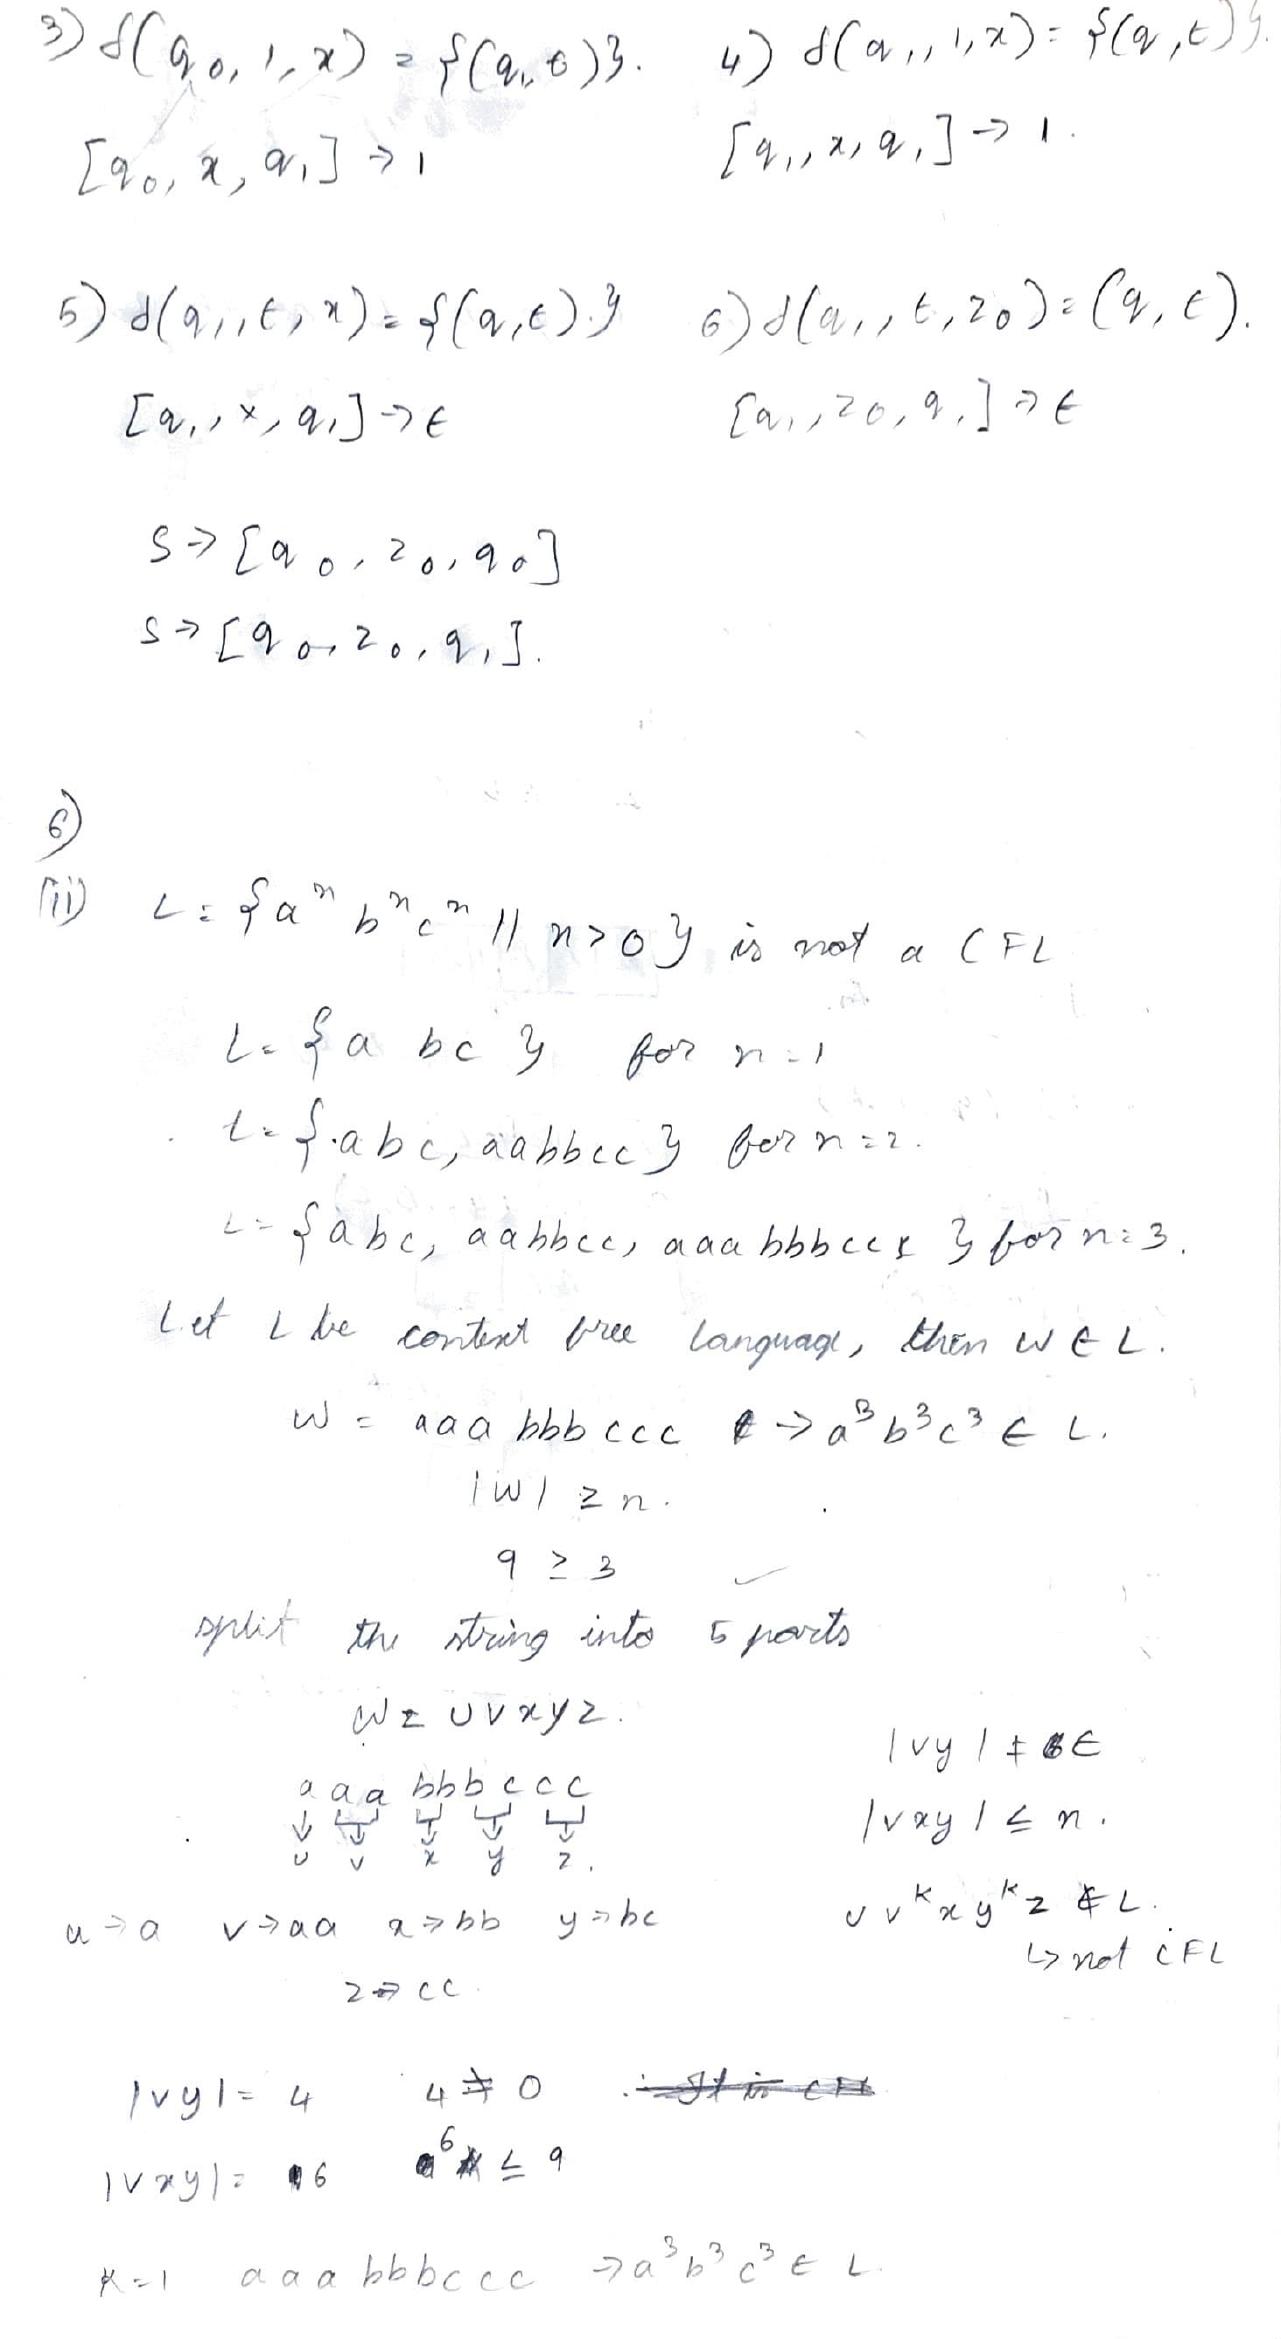 3) δ(q0, 1, x) = {(q1, ε)}. 4) δ(q1, 1, x) = {(q, ε)}.
[q0, x, q1] → 1 [q1, x, q1] → 1.
5) δ(q1, ε, x) = {(q, ε).} 6) δ(q1, ε, z0) = (q, ε).
[q1, x, q1] → ε [q1, z0, q1] → ε
S → [q0, z0, q0]
S → [q0, z0, q1].
6)
(ii) L = {aⁿ bⁿ cⁿ || n > 0} is not a CFL
L = {a bc } for n = 1
L = {abc, aabbcc} for n = 2.
L = {abc, aabbcc, aaabbbccc } for n = 3.
Let L be context free language, then w ∈ L.
W = aaa bbb ccc → a³ b³ c³ ∈ L.
|W| ≥ n.
9 ≥ 3
split the string into 5 parts
W = uvxyz.
|vy| ≠ ε
a a a bbb c c c
|vxy| ≤ n.
u v x y z.
u vᵏ x yᵏ z ∉ L.
u → a v → aa x → bb y → bc
↳ not CFL
z → cc.
|vy| = 4 4 ≠ 0
|vxy| = 6 6 ≤ 9
K = 1 aaa bbb ccc → a³ b³ c³ ∈ L.